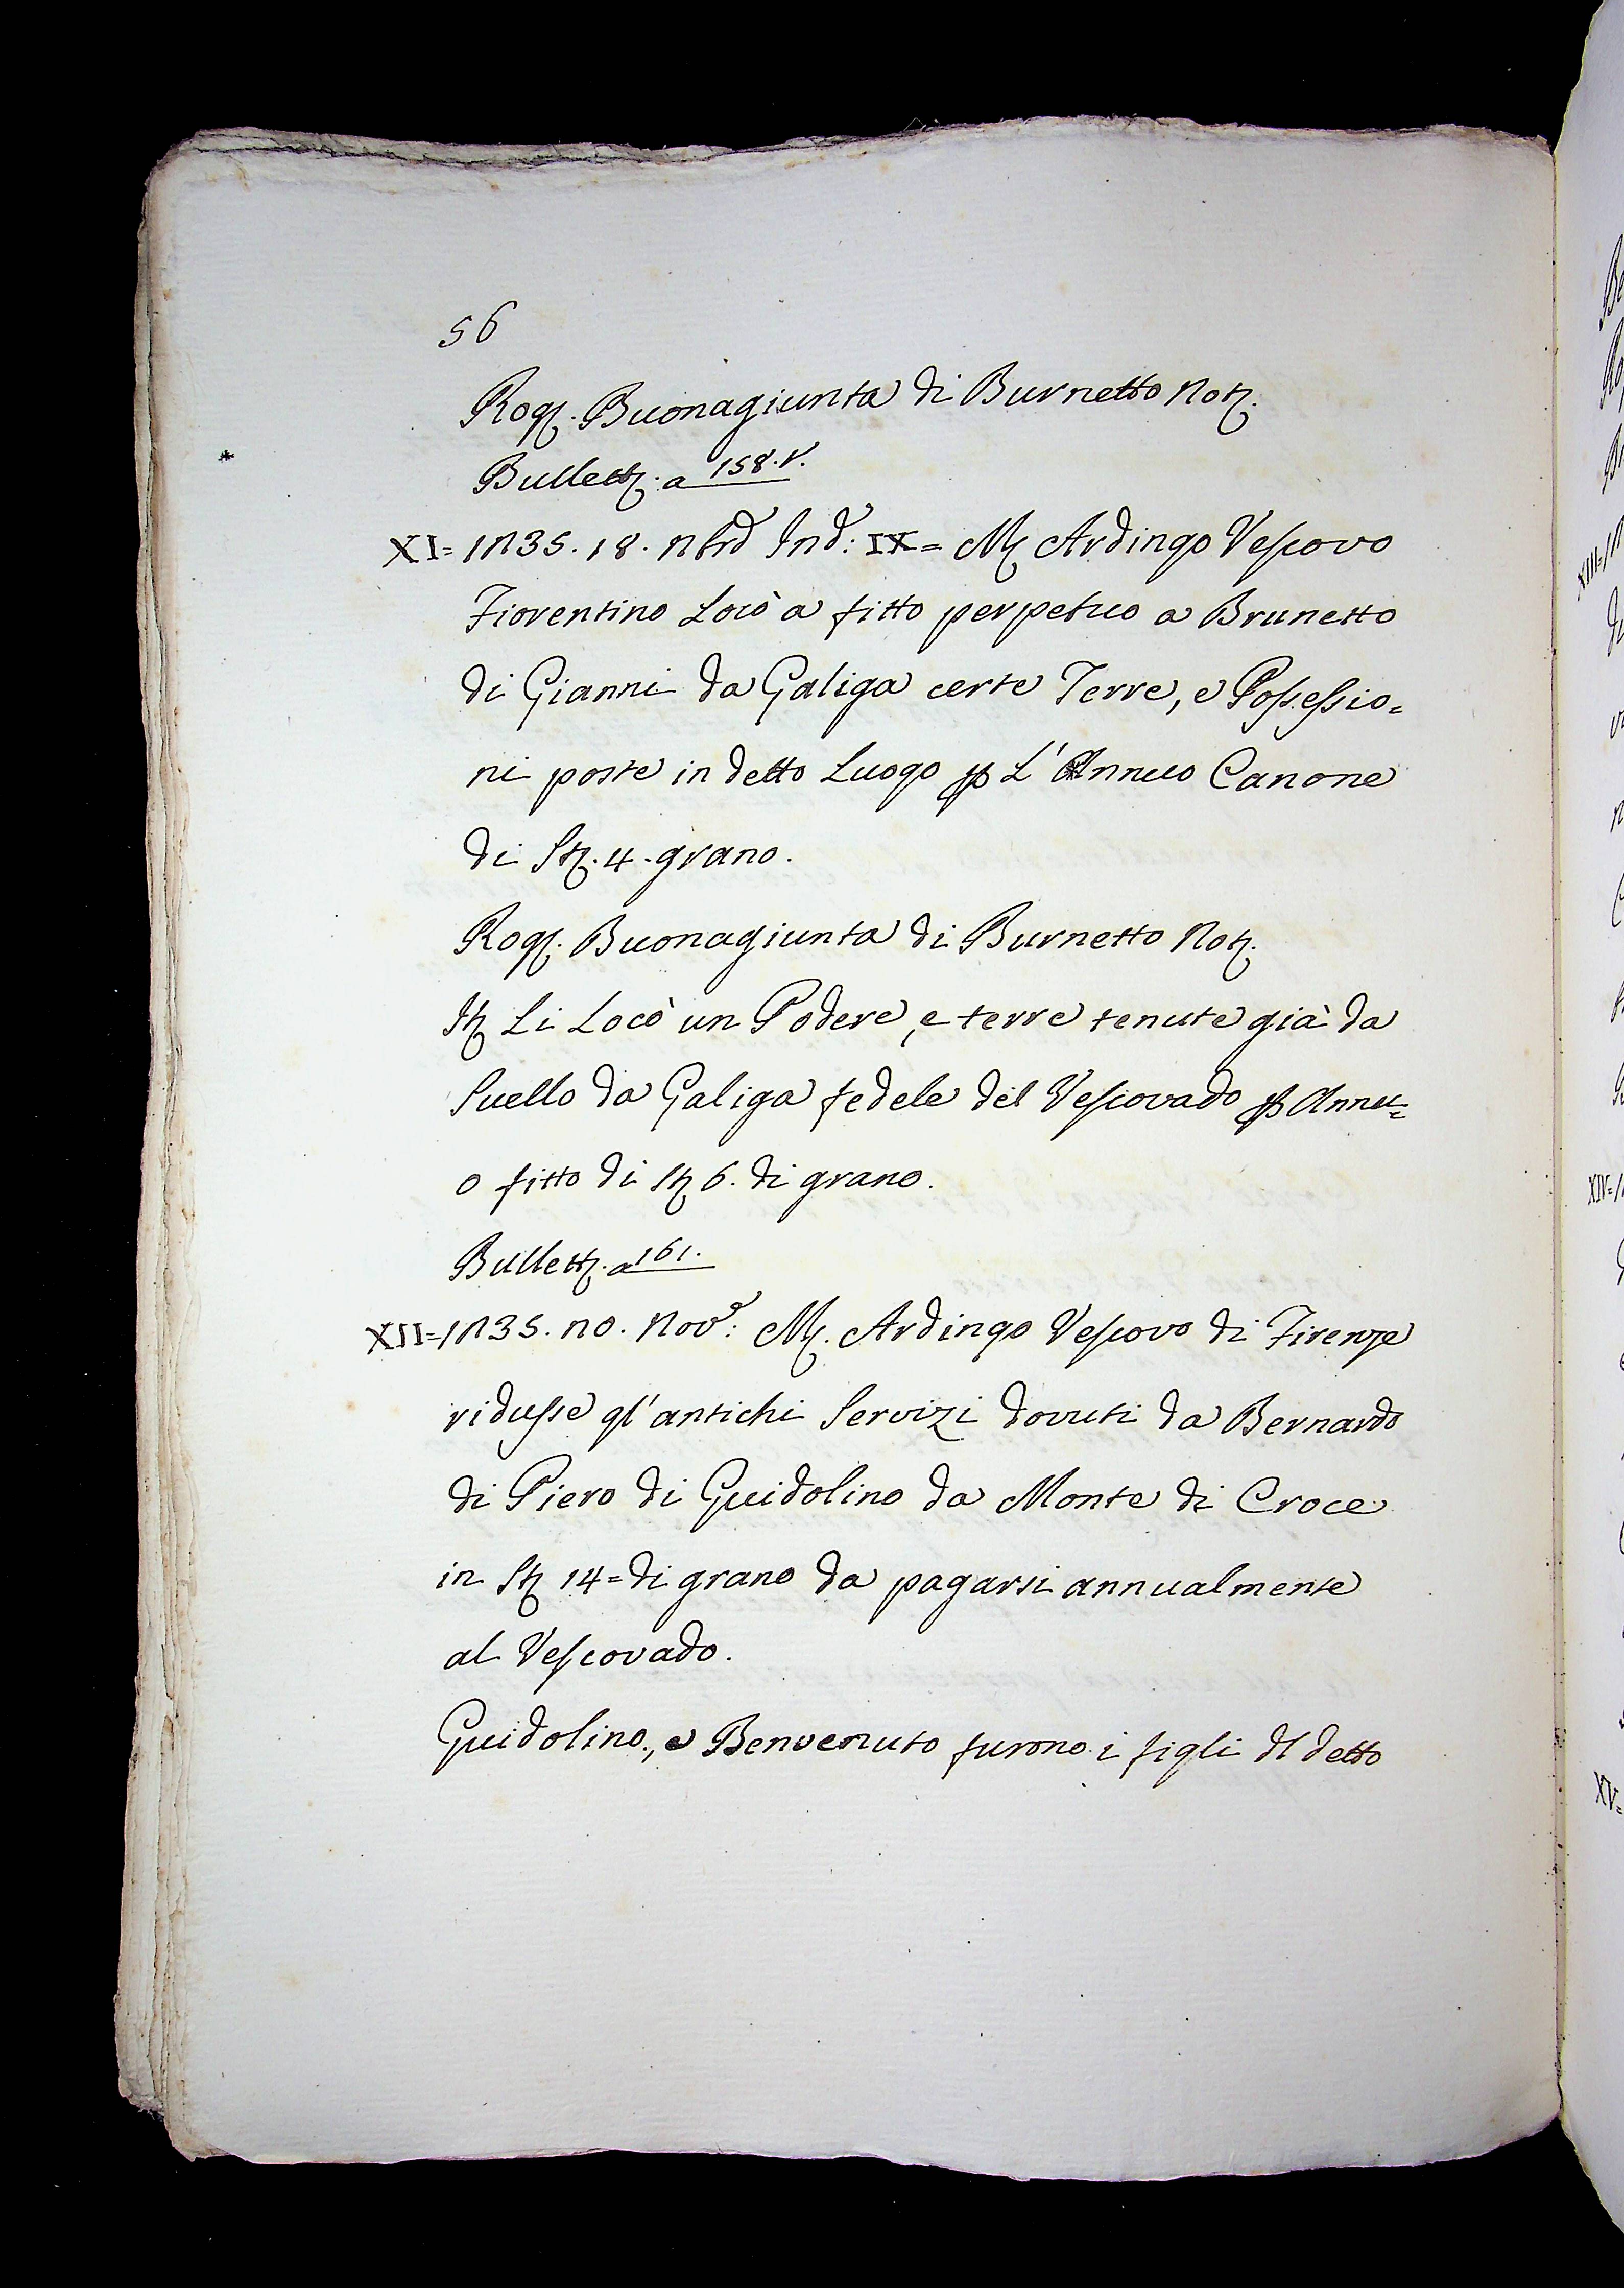 56
Rog. Buonagiunta di Burnetto Not.
Bullett. a 158. v.
XI = 1235. 18. nbre Ind: IX = M. Ardingo Vescovo
Fiorentino Locò a fitto perpetuo a Brunetto
di Gianni da Galiga certe Terre, e Possessio=
ni poste in detto Luogo p L'Annuo Canone
di St. 4. grano.
Rog. Buonagiunta di Burnetto Not.
It Li Locò un Podere, e terre tenute già da
Suello da Galiga fedele del Vescovado p Annu=
o fitto di St 6. di grano.
Bullett. a 161.
XII = 1235. 20. Nove: M. Ardingo Vescovo di Firenze
ridusse gl'antichi Servizi dovuti da Bernardo
di Piero di Guidolino da Monte di Croce
in St 14 = di grano da pagarsi annualmente
al Vescovado.
Guidolino, e Benvenuto furono i figli dl detto